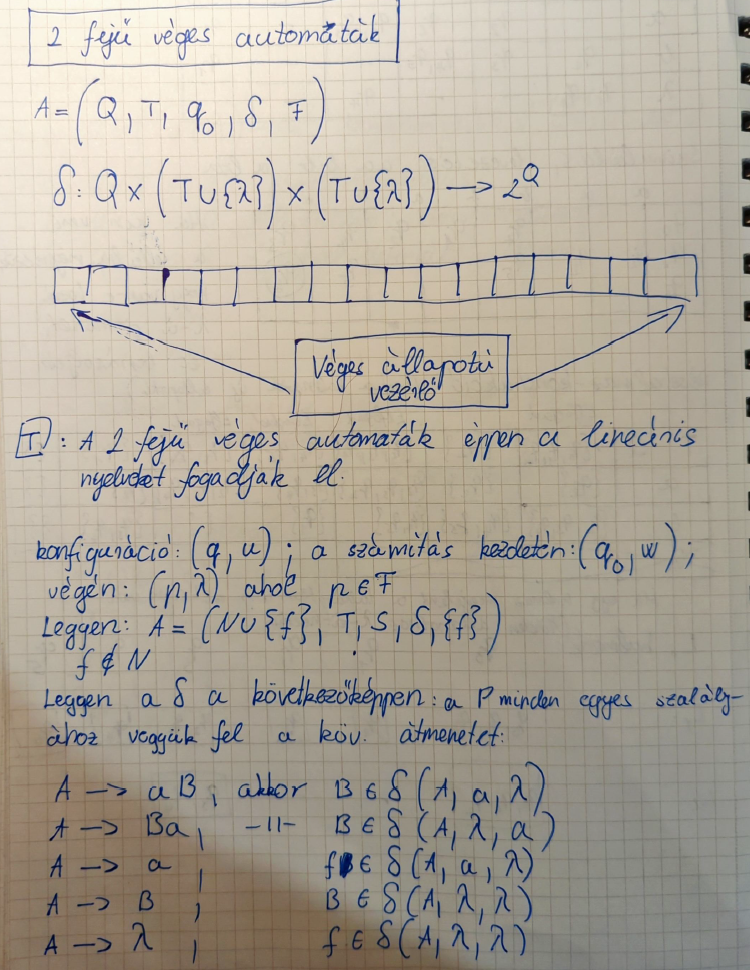 2 fejű véges automaták
A = (Q, T, q₀, δ, F)
δ: Q × (T∪{λ}) × (T∪{λ}) → 2^Q
Véges állapotú
vezérlő
T : A 2 fejű véges automaták éppen a lineáris
nyelveket fogadják el.
konfiguráció: (q, u) ; a számítás kezdetén: (q₀, w) ;
végén: (p, λ) ahol p ∈ F
Leggen: A = (N∪{f}, T, S, δ, {f})
f ∉ N
Leggen a δ a következőképpen: a P minden egyes szabály-
ához vegyük fel a köv. átmenetet:
A → aB, akkor B ∈ δ(A, a, λ)
A → Ba, -11- B ∈ δ(A, λ, a)
A → a, f ∈ δ(A, a, λ)
A → B, B ∈ δ(A, λ, λ)
A → λ, f ∈ δ(A, λ, λ)